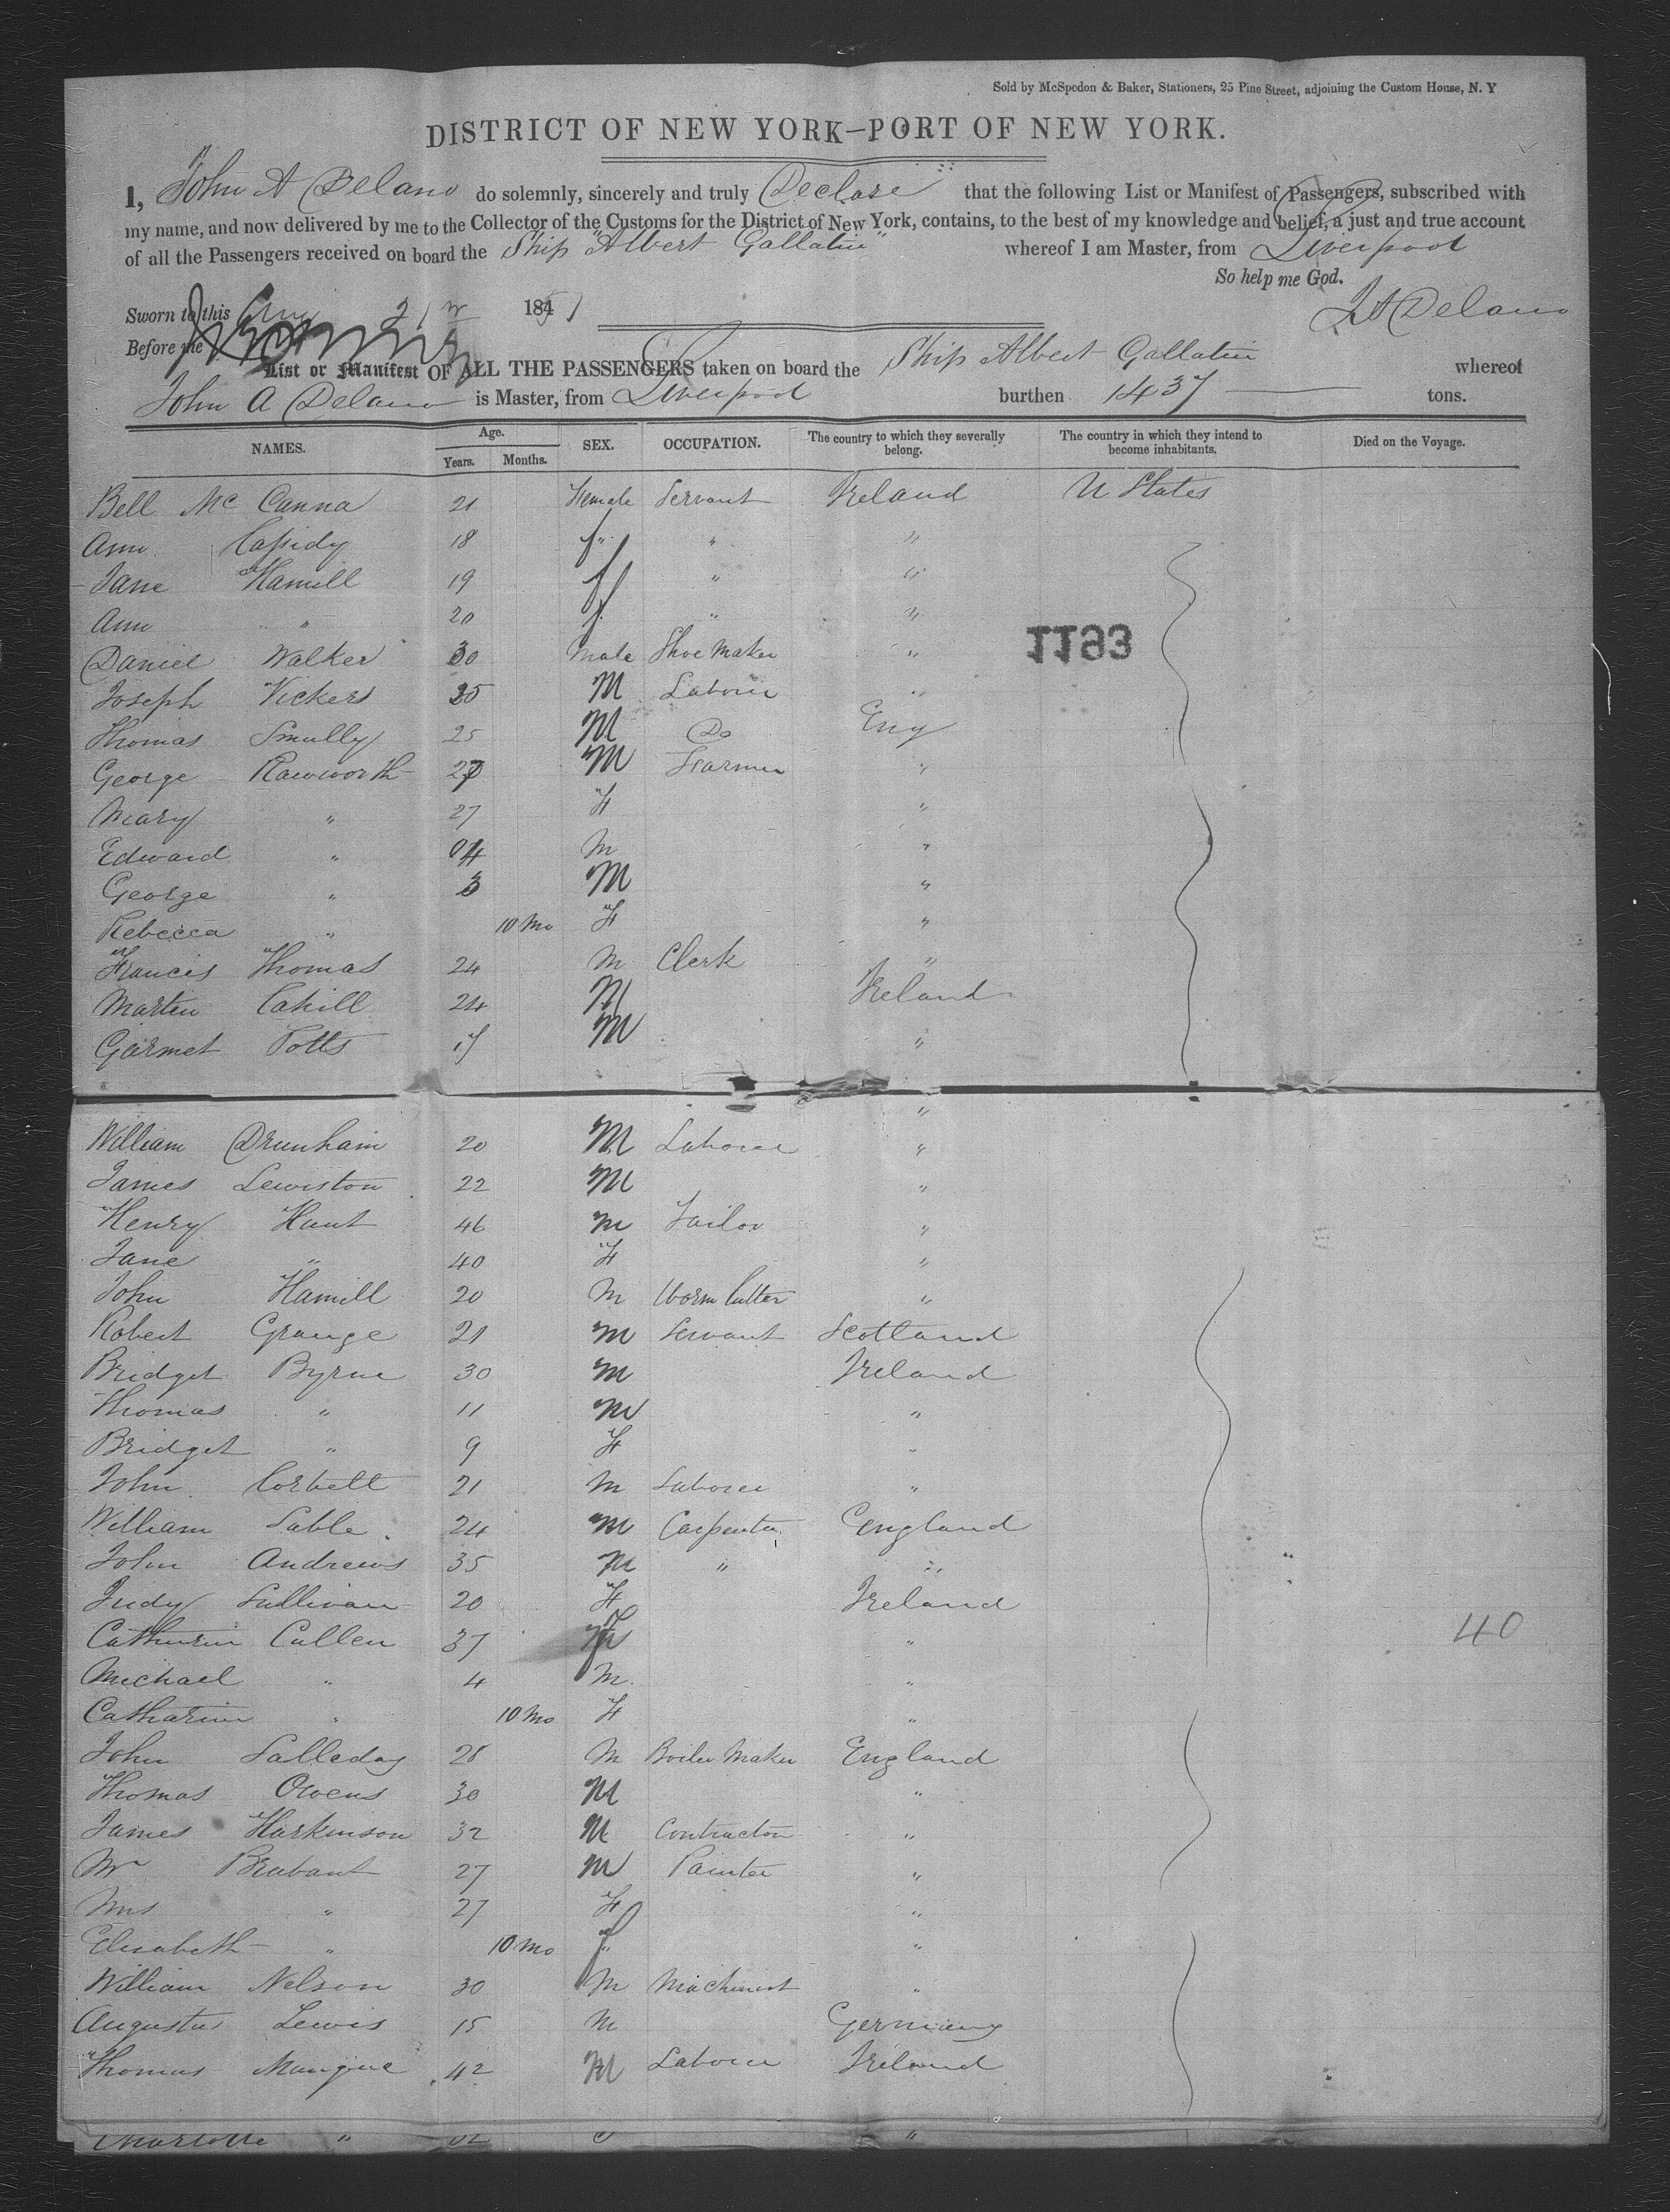 Sold by McSpedon & Baker, Stationers, 25 Pine Street, adjoining the Custom House, N. Y
DISTRICT OF NEW YORK—PORT OF NEW YORK.
I, John A Delano do solemnly, sincerely and truly Declare that the following List or Manifest of Passengers, subscribed with
my name, and now delivered by me to the Collector of the Customs for the District of New York, contains, to the best of my knowledge and belief, a just and true account
of all the Passengers received on board the Ship "Albert Gallatin" whereof I am Master, from Liverpool
So help me God.
Sworn to this 21 1851
J A Delano
Before me
List or Manifest OF ALL THE PASSENGERS taken on board the Ship Albert Gallatin whereof
John A Delano is Master, from Liverpool burthen 1437 tons.
NAMES. Age. Years. Months. SEX. OCCUPATION. The country to which they severally belong. The country in which they intend to become inhabitants. Died on the Voyage.
Bell Mc Canna 21 Female Servant Ireland U States
Ann Cassidy 18 f " " "
Jane Hamill 19 f " "
Ann " 20 f " "
Daniel Walker 30 Male Shoe Maker "
1193
Joseph Vickers 25 M Laborer "
Thomas Smully 25 M Do Eng
George Rawworth 27 M Farmer "
Mary " 27 F "
Edward " 4 M "
George " 3 M "
Rebecca " 10 Mo F "
Francis Thomas 24 M Clerk "
Martin Cahill 24 M Ireland
Garmet Potts 17 M "
"
William Drunham 20 M Laborer "
James Lewiston 22 M "
Henry Hunt 46 M Tailor "
Jane " 40 F "
John Hamill 20 M "
Robert Grange 21 M Servant Scotland
Bridget Byrne 30 M Ireland
Thomas " 11 M "
Bridget " 9 F "
John Corbett 21 M Laborer "
William Sable 24 M Carpenter England
John Andrews 35 M " "
Judy Sullivan 20 F Ireland
Catherin Cullen 37 F "
40
Michael " 4 M "
Catharine " 10 Mo F "
John Salleday 28 M Boiler Maker England
Thomas Owens 30 M "
James Harkinson 32 M Contractor "
Mr Brabant 27 M Painter "
Mrs " 27 F "
Elisabeth " 10 Mo f "
William Nelson 30 M Machinist "
Augustus Lewis 15 M Germany
Thomas Mangue 42 M Laborer Ireland
Charlotte "